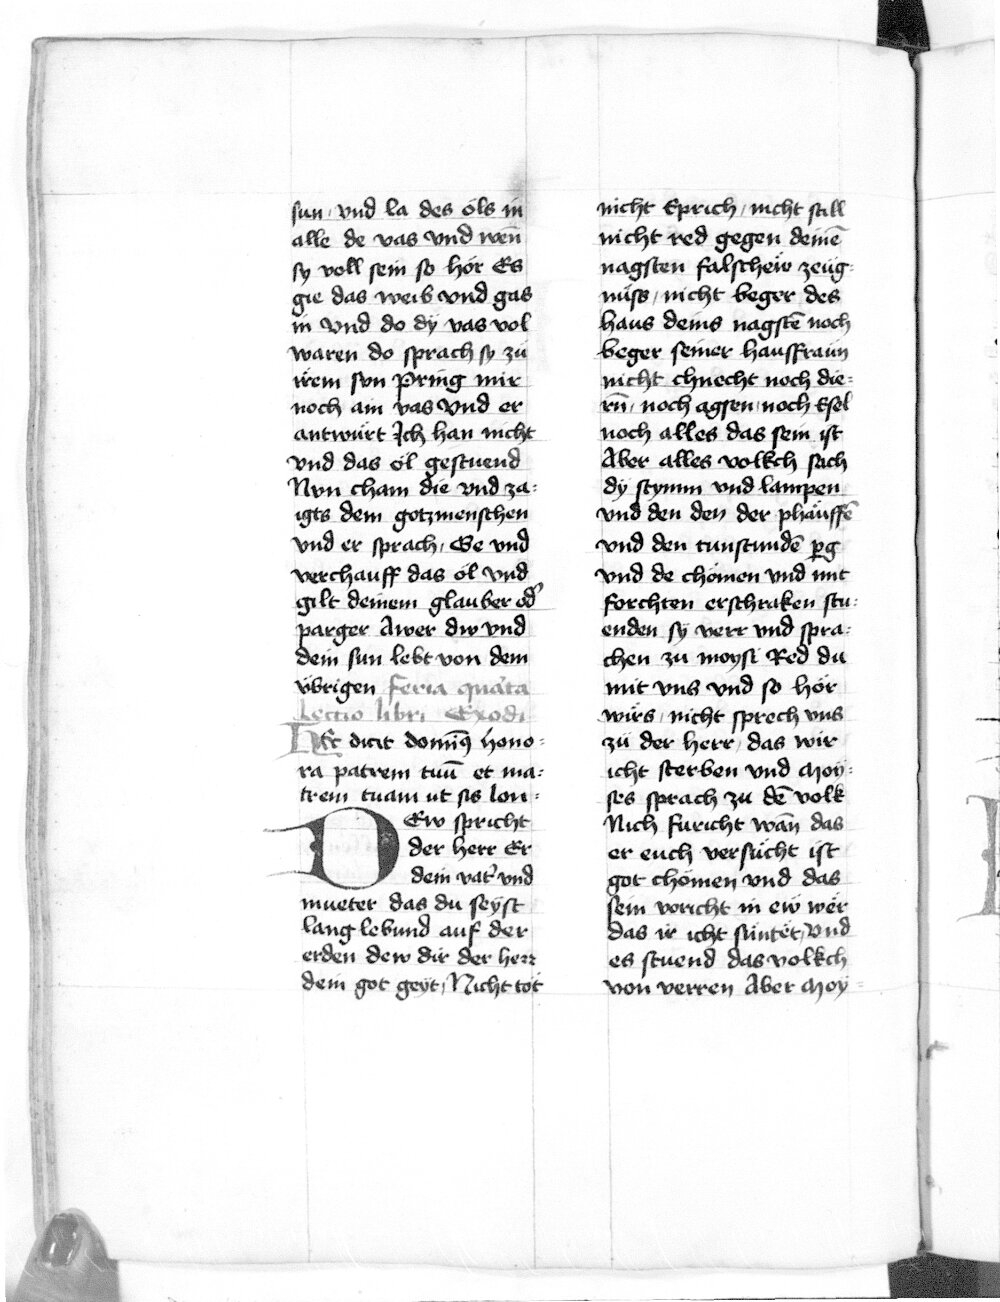 sun / vnd la des öls in
alle de vas vnd weñ
sy voll sein so hör Es
gie das weib vnd gas
in vnd do dÿ vas vol
waren do sprach sy zü
irem svn Pring mir
noch ain vas vnd er
antwürt Ich han nicht
vnd das öl gestuend
Nvn cham die vnd za-
igts dem gotzmenschen
vnd er sprach / Ge vnd
verchauff das öl vnd
gilt deinem glauber od̾
parger Awer dw vnd
dein sun lebt von dem
vbrigen Feria quarta
Lectio libri Exodi
Hec dicit dominꝯ hono-
ra patrem tuū et ma-
trem tuam ut sis lon-
Dew spricht
der herr Er
dein vat̾ vnd
mueter das du seyst
lang lebund auf der
erden dew dir der herr
dein got geyt / Nicht töt
nicht Eprich / nicht still
nicht red gegen deinē
nagsten falschew zeug-
nüss / nicht beger des
haus deins nagstē noch
beger seiner hauffraün
nicht chnecht noch die-
rn̄ / noch agsen / noch Esel
noch alles das sein ist
Aber alles volkch sach
dÿ stymm vnd lampen
vnd den don der phäuffē
vnd den tunstundē ꝑg
vnd de chömen vnd mit
forchten erschraken stu-
enden sÿ verr vnd spra-
chen zu moysi Red du
mit vns vnd so hör
wirs / nicht sprech vns
zü der herr / das wir
icht sterben vnd Moÿ-
ses sprach zu dē volk
Nich Furicht wan̄ das
er euch versücht ist
got chömen vnd das
sein voricht in ew wer
das ir icht süntet / Vnd
es stuend das volkch
von verren Aber Moÿ-